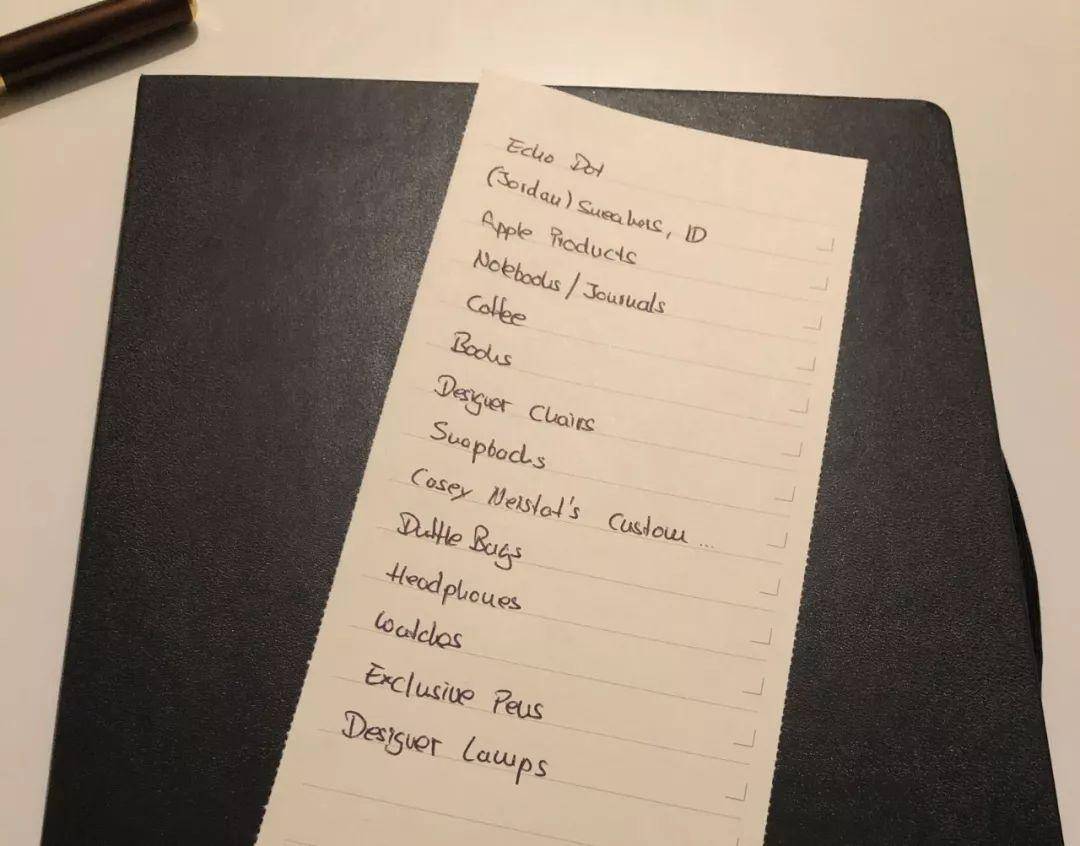 Echo Dot
(Jordan) Sneakers, ID
Apple Products
Notebooks / Journals
Coffee
Books
Designer Chairs
Snapbacks
Casey Neistat's Custom ...
Duffle Bags
Headphones
Watches
Exclusive Pens
Designer Lamps